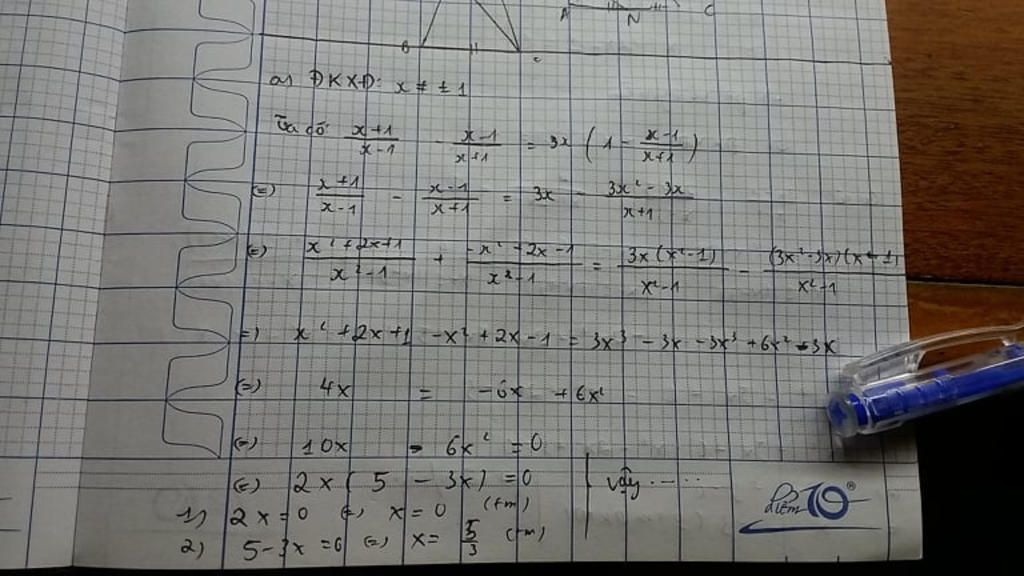 A N C
B C
a) ĐKXĐ: x ≠ ± 1
Ta có: \frac{x+1}{x-1} - \frac{x-1}{x+1} = 3x (1 - \frac{x-1}{x+1})
(=) \frac{x+1}{x-1} - \frac{x-1}{x+1} = 3x - \frac{3x² - 3x}{x+1}
(=) \frac{x² + 2x+1}{x²-1} + \frac{-x² + 2x-1}{x²-1} = \frac{3x(x²-1)}{x²-1} - \frac{(3x²-3x)(x-1)}{x²-1}
=) x² + 2x+1 -x² + 2x - 1 = 3x³ - 3x - 3x³ + 6x² - 3x
(=) 4x = -6x + 6x²
(=) 10x - 6x² = 0
(=) 2x ( 5 - 3x) = 0
1) 2x = 0 (=) x = 0 (tm)
2) 5-3x = 0 (=) x = \frac{5}{3} (tm)
Vậy .....
Điểm 10 ®